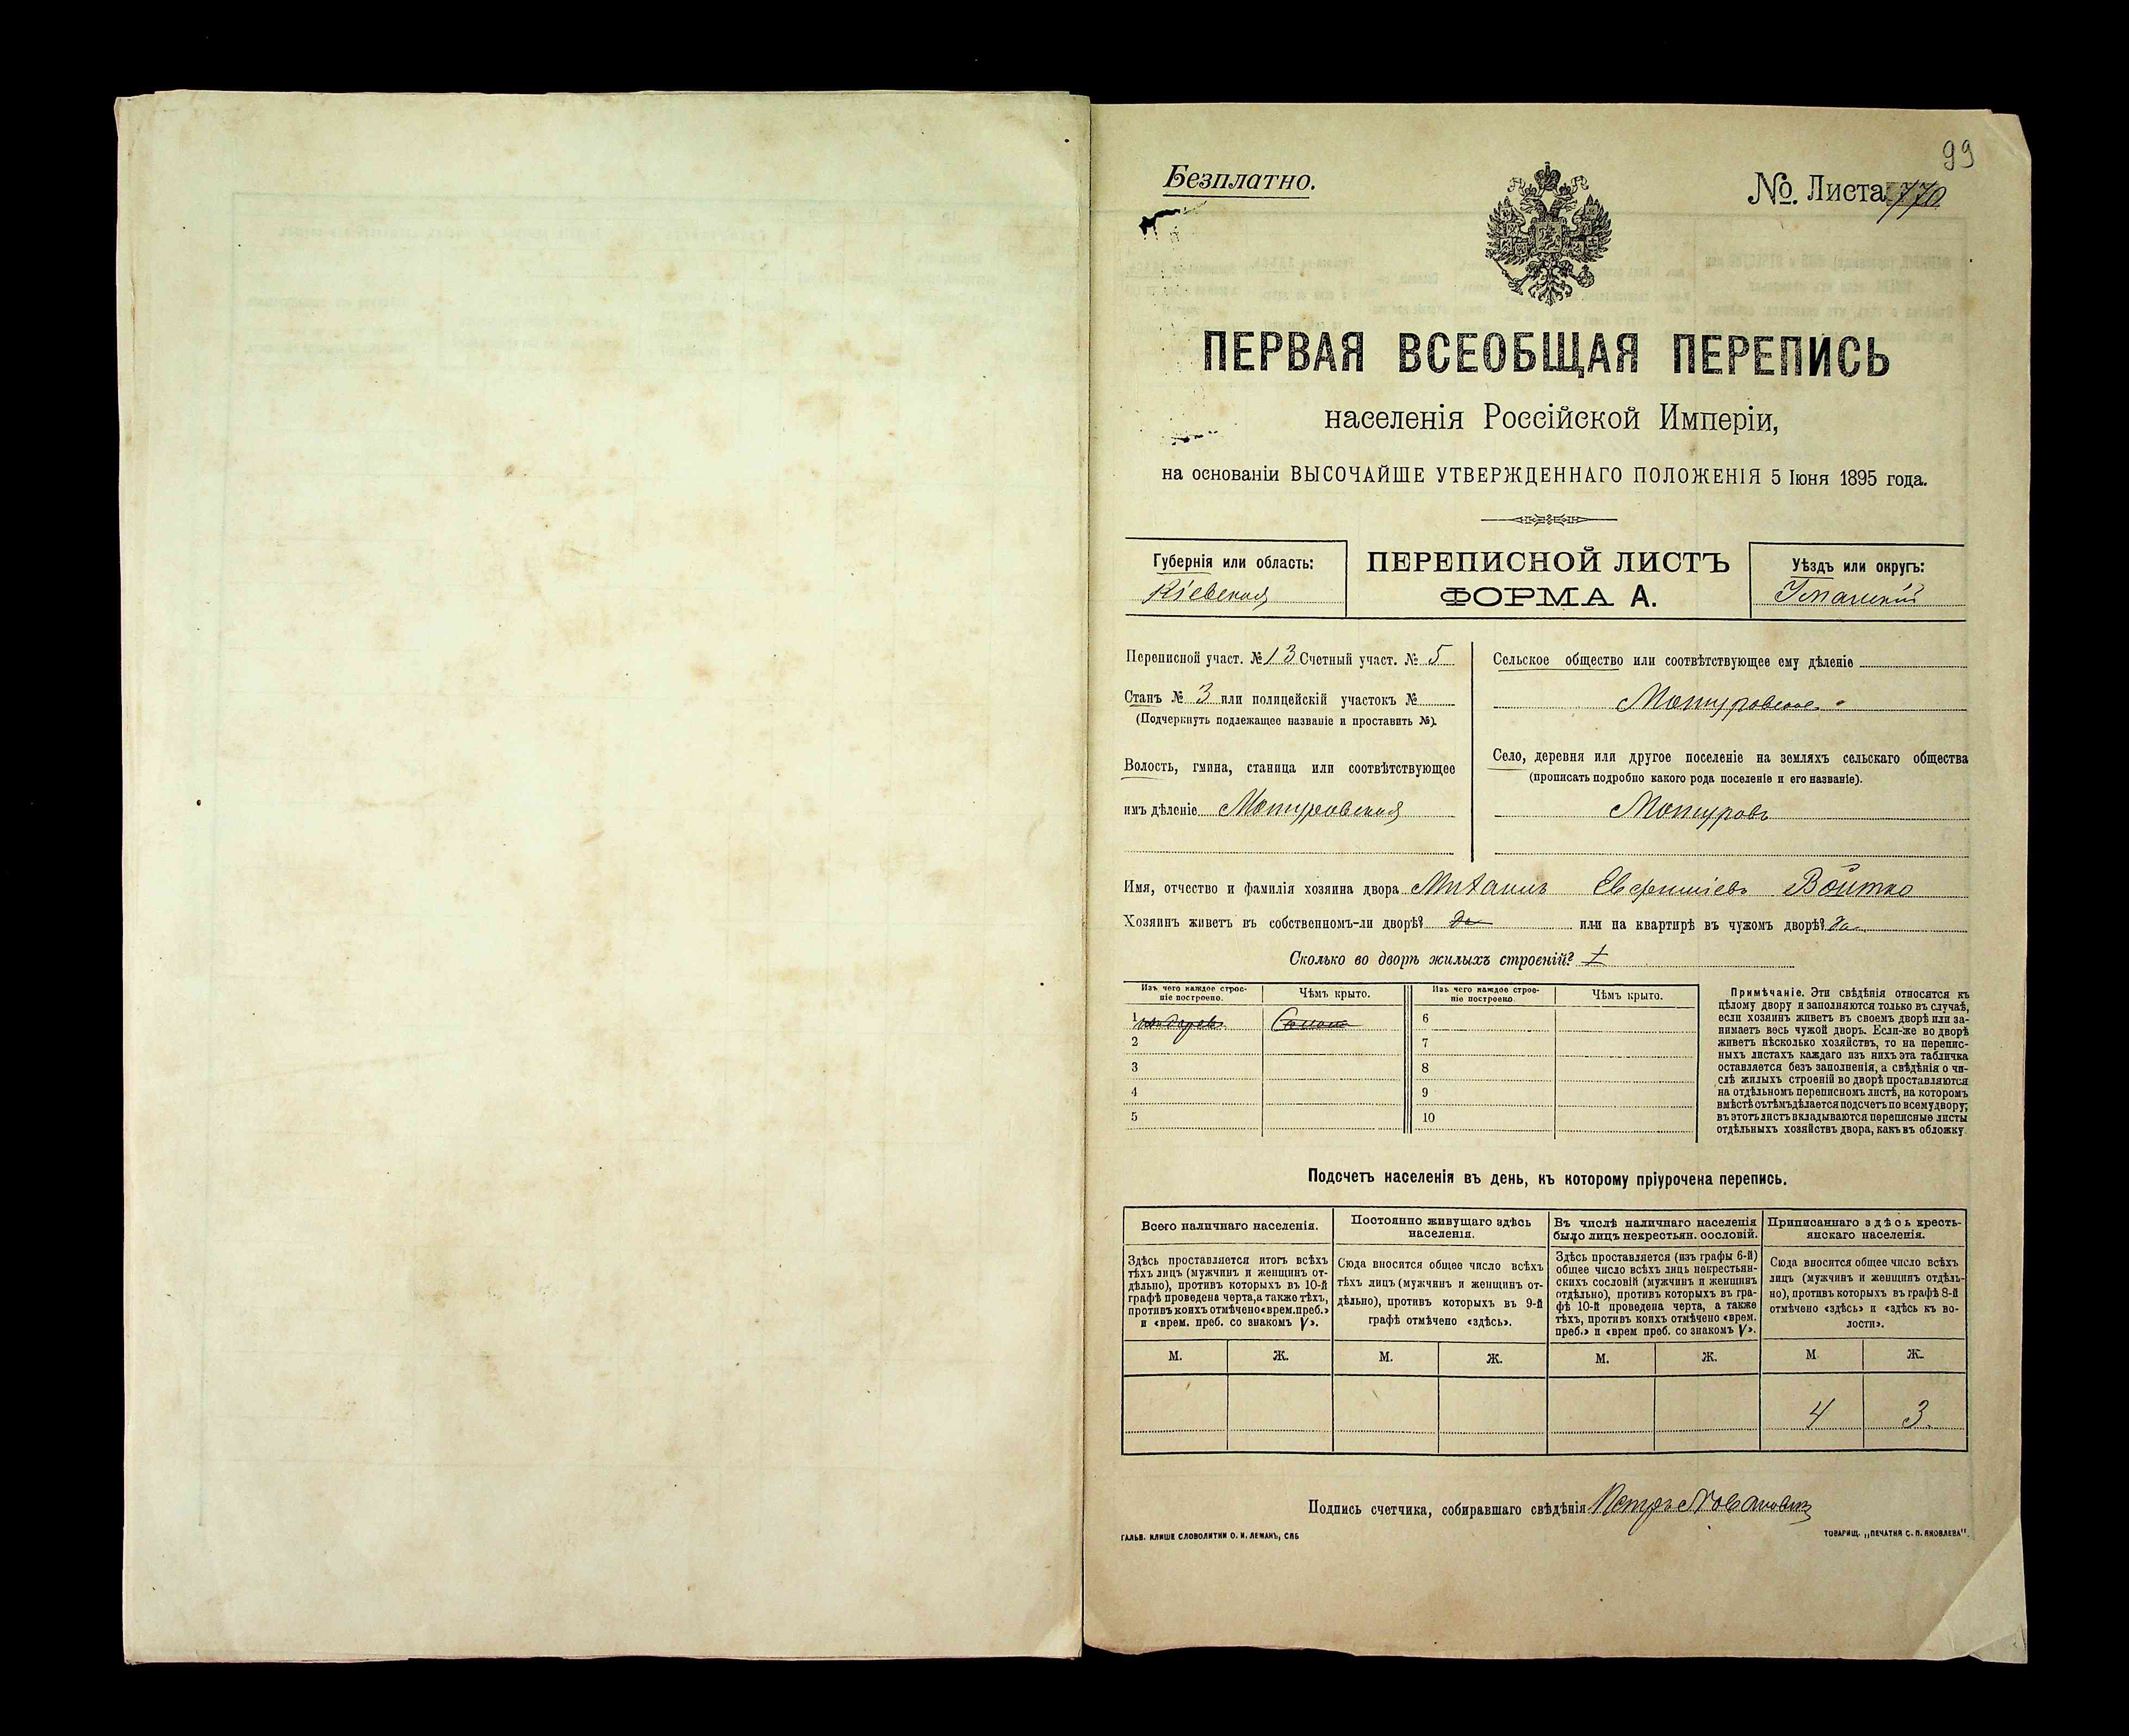 99
Безплатно.
№. Листа 770
ПЕРВАЯ ВСЕОБЩАЯ ПЕРЕПИСЬ
населенія Россійской Имперіи,
на основаніи ВЫСОЧАЙШЕ УТВЕРЖДЕННАГО ПОЛОЖЕНІЯ 5 Іюня 1895 года.
Губернія или область:
Кіевская
ПЕРЕПИСНОЙ ЛИСТЪ
ФОРМА А.
Уѣздъ или округъ:
Уманскій
Переписной участ. № 13 Счетный участ. № 5
Станъ № 3 или полицейскій участокъ №
(Подчеркнуть подлежащее названіе и проставить №).
Волость, гмина, станица или соотвѣтствующее
имъ дѣленіе Мотуровская
Сельское общество или соотвѣтствующее ему дѣленіе
Мотуровское
Село, деревня или другое поселеніе на земляхъ сельскаго общества
(прописать подробно какого рода поселеніе и его названіе).
Мотуровъ
Имя, отчество и фамилія хозяина двора Михаилъ Евфиміевъ Войтко
Хозяинъ живетъ въ собственномъ-ли дворѣ? да или на квартирѣ въ чужомъ дворѣ? да
Сколько во дворѣ жилыхъ строеній?
Изъ чего каждое строе-
ніе построено.
Чѣмъ крыто.
Изъ чего каждое строе-
ніе построено
Чѣмъ крыто.
1
6
2
7
3
8
4
9
5
10
Примѣчаніе. Эти свѣдѣнія относятся къ
цѣлому двору и заполняются только въ случаѣ,
если хозяинъ живетъ въ своемъ дворѣ или за-
нимаетъ весь чужой дворъ. Если-же во дворѣ
живетъ нѣсколько хозяйствъ, то на перепис-
ныхъ листахъ каждаго изъ нихъ эта табличка
оставляется безъ заполненія, а свѣдѣнія о чи-
слѣ жилыхъ строеній во дворѣ проставляются
на отдѣльномъ переписномъ листѣ, на которомъ
вмѣстѣ съ тѣмъ дѣлается подсчетъ по всему двору;
въ этотъ листъ вкладываются переписные листы
отдѣльныхъ хозяйствъ двора, какъ въ обложку
Подсчетъ населенія въ день, къ которому пріурочена перепись.
Всего наличнаго населенія.
Здѣсь проставляется итогъ всѣхъ
тѣхъ лицъ (мужчинъ и женщинъ от-
дѣльно), противъ которыхъ въ 10-й
графѣ проведена черта, а также тѣхъ,
противъ коихъ отмѣчено «врем. преб.»
и «врем. преб. со знакомъ V».
Постоянно живущаго здѣсь
населенія.
Сюда вносится общее число всѣхъ
тѣхъ лицъ (мужчинъ и женщинъ от-
дѣльно), противъ которыхъ въ 9-й
графѣ отмѣчено «здѣсь».
Въ числѣ наличнаго населенія
было лицъ некрестьян. сословій.
Здѣсь проставляется (изъ графы 6-й)
общее число всѣхъ лицъ некрестьян-
скихъ сословій (мужчинъ и женщинъ
отдѣльно), противъ которыхъ въ гра-
фѣ 10-й проведена черта, а также
тѣхъ, противъ коихъ отмѣчено «врем.
преб.» и «врем преб. со знакомъ V».
Приписаннаго здѣсь кресть-
янскаго населенія.
Сюда вносится общее число всѣхъ
лицъ (мужчинъ и женщинъ отдѣль-
но), противъ которыхъ въ графѣ 8-й
отмѣчено «здѣсь» и «здѣсь къ во-
лости».
М. Ж. М. Ж. М. Ж. М Ж.
4 3
Подпись счетчика, собиравшаго свѣдѣнія Петръ
ГАЛЬВ. КЛИШЕ СЛОВОЛИТНИ О. И. ЛЕМАНЪ, СПБ
ТОВАРИЩ. „ПЕЧАТНЯ С. П. ЯКОВЛЕВА".